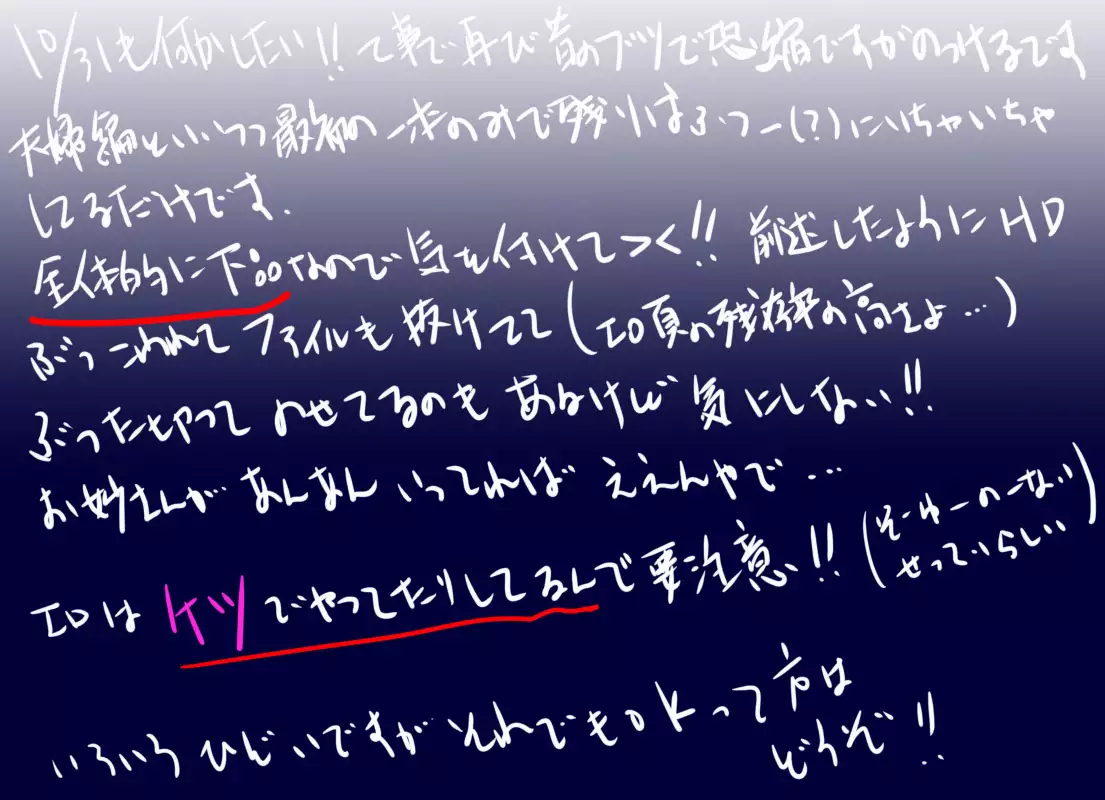 10/31も何かしたい!!て事で再び昔のブツで恐縮ですがのっけるです
夫婦編といいつつ最初の一歩のみで残りはふつー(?)にいちゃいちゃ
してるだけです.
全体的に下品なので気を付けてつく!!前述したようにHD
ぶっこわれてファイルも抜けてて(エロ頁の残存率の高さよ…)
ぶったちゃってのせてるのもあるけど気にしない!!
お妙さんがあんあんいってればええんやで…
エロはケツでやってたりしてるんで要注意!!(そーゆーのーない
せっていらしい)
いろいろひどいですがそれでもOKって方は
どうぞ!!